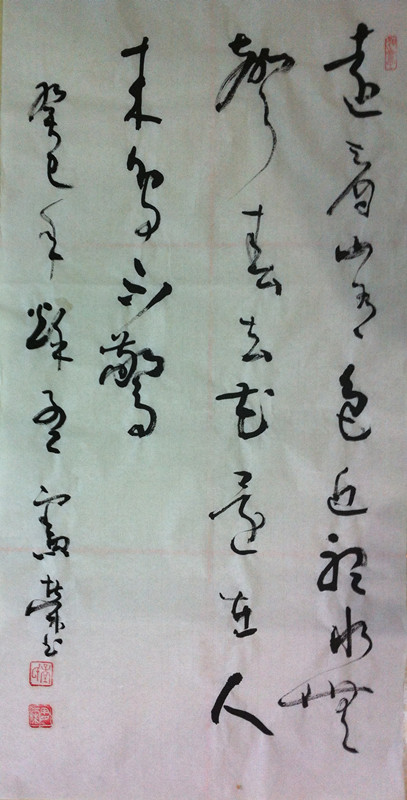 遠看山有色近聽水無
聲春去花還在人
来鳥不驚
癸巳年秋憲榮書